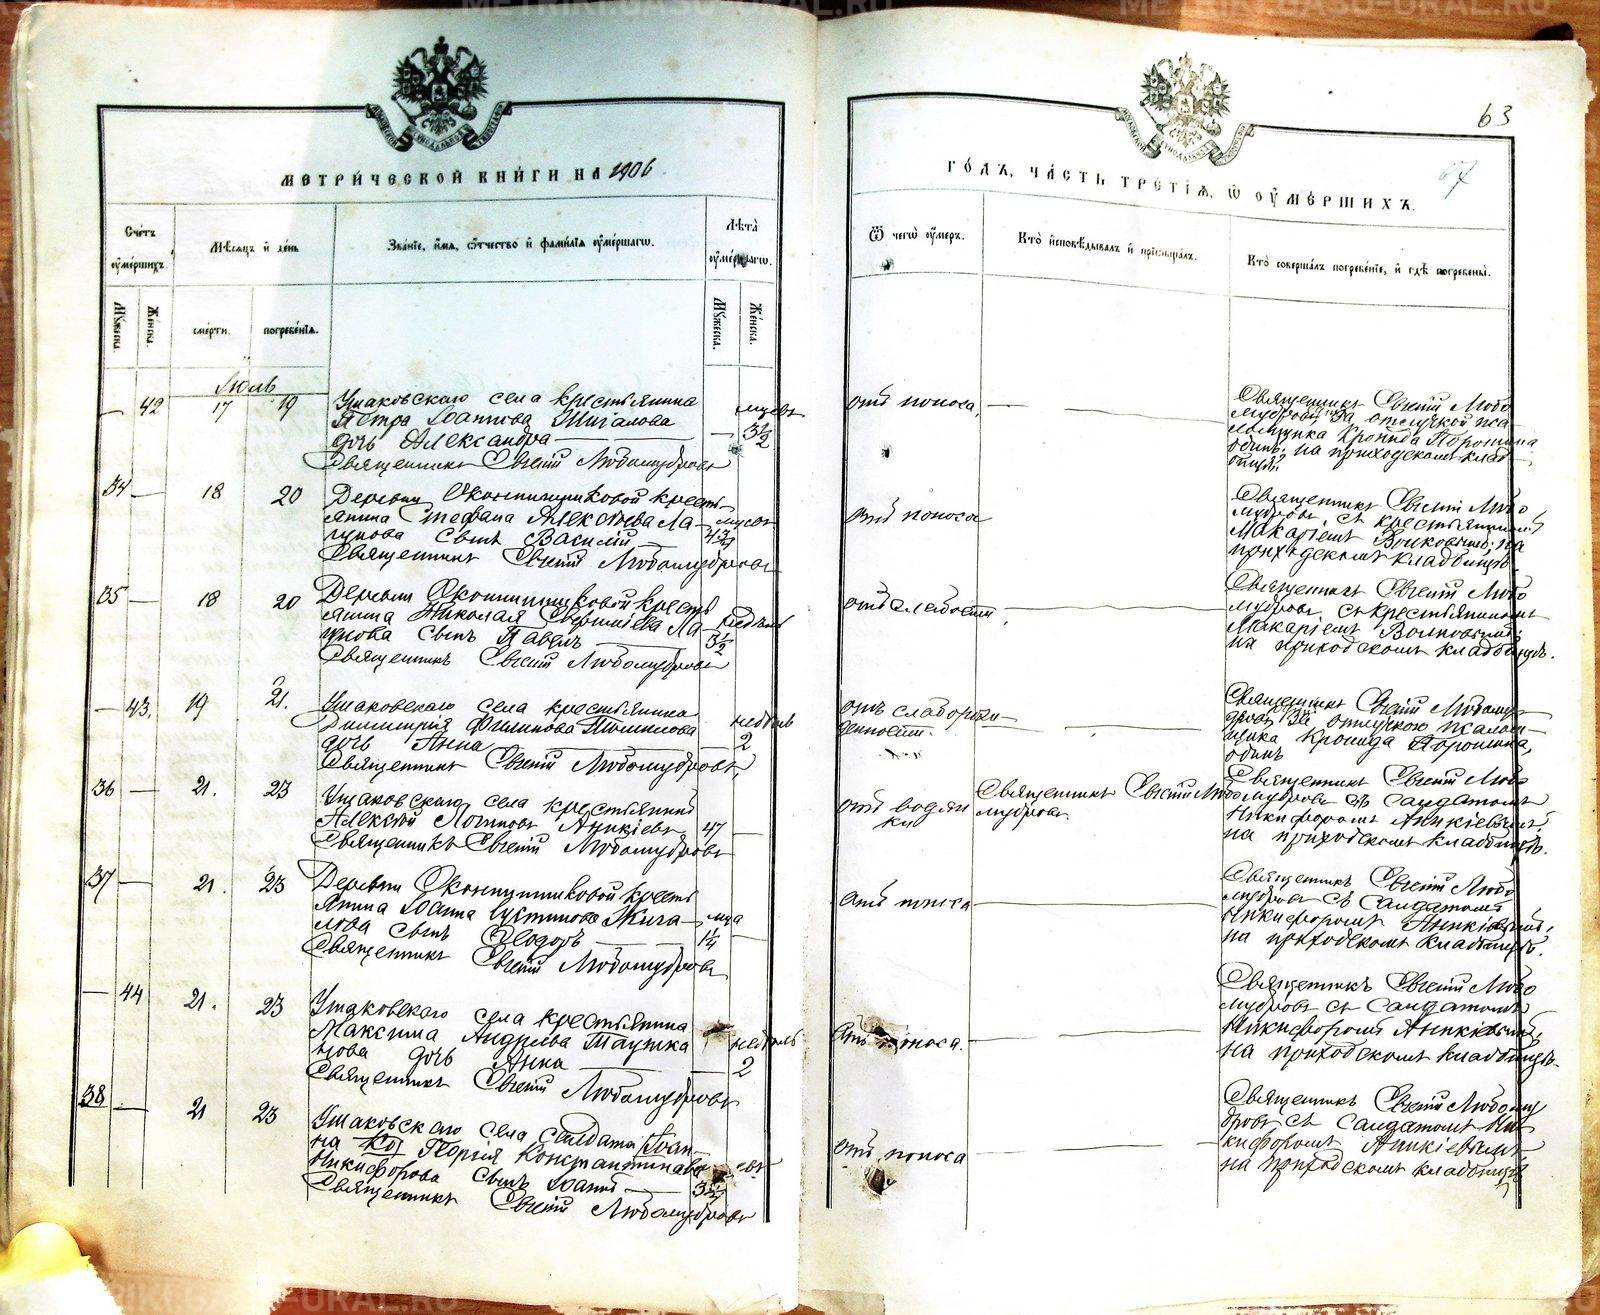 METRIKI.GASO-URAL.RU
METRIKI.GASO-URAL.RU
63
67
МЕТРИЧЕСКОЙ КНИГИ НА 1906
ГОДЪ, ЧАСТЬ ТРЕТІЯ, Ѿ ОУМЕРШИХЪ.
Счетъ оумершихъ.
Мѣсяцъ и день
Званіе, имя, отчество и фамилія оумершагѡ.
Лѣта оумершагѡ.
Мужеска.
Женска.
смерти.
погребенія.
Мужеска.
Женска.
Ѿ чегѡ оумеръ.
Кто исповѣдывалъ и пріобщалъ.
Кто совершалъ погребеніе, и гдѣ погребены.
Іюль
42 17 19
Ушаковскаго села крестьянина
Петра Іоаннова Шигалова
дочь Александра
Священникъ Евгеній Любомудровъ
3 1/2
отъ поноса,
Священникъ Евгеній Любо
мудровъ, за отлучкой пса
ломщика Кронида Порошина
одинъ, на приходскомъ клад
бищѣ.
34 18 20
Деревни крестья
янина Стефана Алексѣева Ла
гунова сынъ Василій
Священникъ Евгеній Любомудровъ
отъ поноса
Священникъ Евгеній Любо
мудровъ, съ крестьяниномъ
Макаріемъ Волковымъ, на
приходскомъ кладбищѣ.
35 18 20
Деревни кресть
янина Николая Ла
гунова сынъ Павелъ
Священникъ Евгеній Любомудровъ
недѣль
3 1/2
отъ слабости
Священникъ Евгеній Любо
мудровъ, съ крестьяниномъ
Макаріемъ Волковымъ,
на приходскомъ кладбищѣ.
43. 19 21.
Ушаковскаго села крестьянина
Димитрія Филипова
дочь Анна
Священникъ Евгеній Любомудровъ,
недѣль
2
отъ слаборож
денности.
Священникъ Евгеній Любому
дровъ за отлучкою псалом
щика Кронида Порошина,
одинъ
36 21. 23
Ушаковскаго села крестьянинъ
Алексѣй Логиновъ Аникіевъ
Священникъ Евгеній Любомудровъ
47
отъ водян
ки
Священникъ Евгеній Любо
мудровъ.
Священникъ Евгеній Любо
мудровъ съ солдатомъ
Никифоромъ Аникіевымъ,
на приходскомъ кладбищѣ.
37 21. 23
Деревни кресть
янина Іоанна Устинова Жига
лова сынъ Ѳеодоръ
Священникъ Евгеній Любомудровъ
1 1/4
отъ поноса
Священникъ Евгеній Любо
мудровъ съ солдатомъ
Никифоромъ Аникіевымъ,
на приходскомъ кладбищѣ.
44 21. 23
Ушаковскаго села крестьянина
Максима Андреева
нова дочь Анна
Священникъ Евгеній Любомудровъ
недѣль
2
отъ поноса.
Священникъ Евгеній Любо
мудровъ съ солдатомъ
Никифоромъ Аникіевымъ,
на приходскомъ кладбищѣ.
38 21 23
Ушаковскаго села солдата Іоан
на Георгія Константинова
Никифорова сынъ Іоаннъ
Священникъ Евгеній Любомудровъ
отъ поноса
Священникъ Евгеній Любому
дровъ съ солдатомъ Ни
кифоромъ Аникіевымъ
на приходскомъ кладбищѣ
METRIKI.GASO-URAL.RU